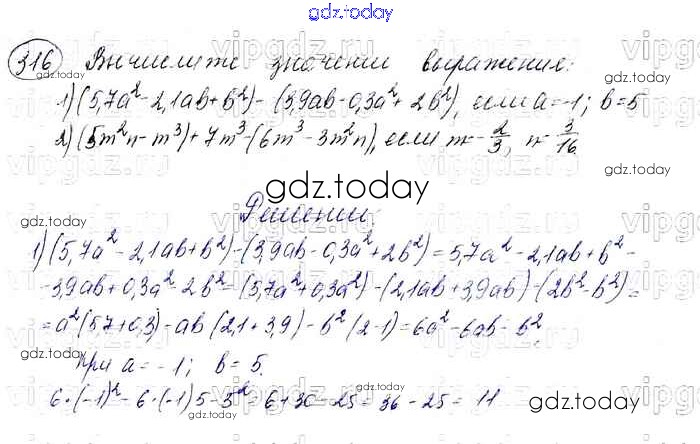 gdz.today
316 Вычислите значении выражение:
gdz.today
1) (5,7a² - 2,1ab + b²) - (3,9ab - 0,3a² + 2b²), если a = -1; b = 5
2) (5m²n - m³) + 7m³ - (6m³ - 3m²n), если m = -2/3, n = 3/16
gdz.today
Решении:
gdz.today
1) (5,7a² - 2,1ab + b²) - (3,9ab - 0,3a² + 2b²) = 5,7a² - 2,1ab + b² -
- 3,9ab + 0,3a² - 2b² = (5,7a² + 0,3a²) - (2,1ab + 3,9ab) - (2b² - b²) =
= a²(5,7 + 0,3) - ab(2,1 + 3,9) - b²(2 - 1) = 6a² - 6ab - b²,
при a = -1; b = 5.
6·(-1)² - 6·(-1)5 - 5² = 6 + 30 - 25 = 36 - 25 = 11
gdz.today